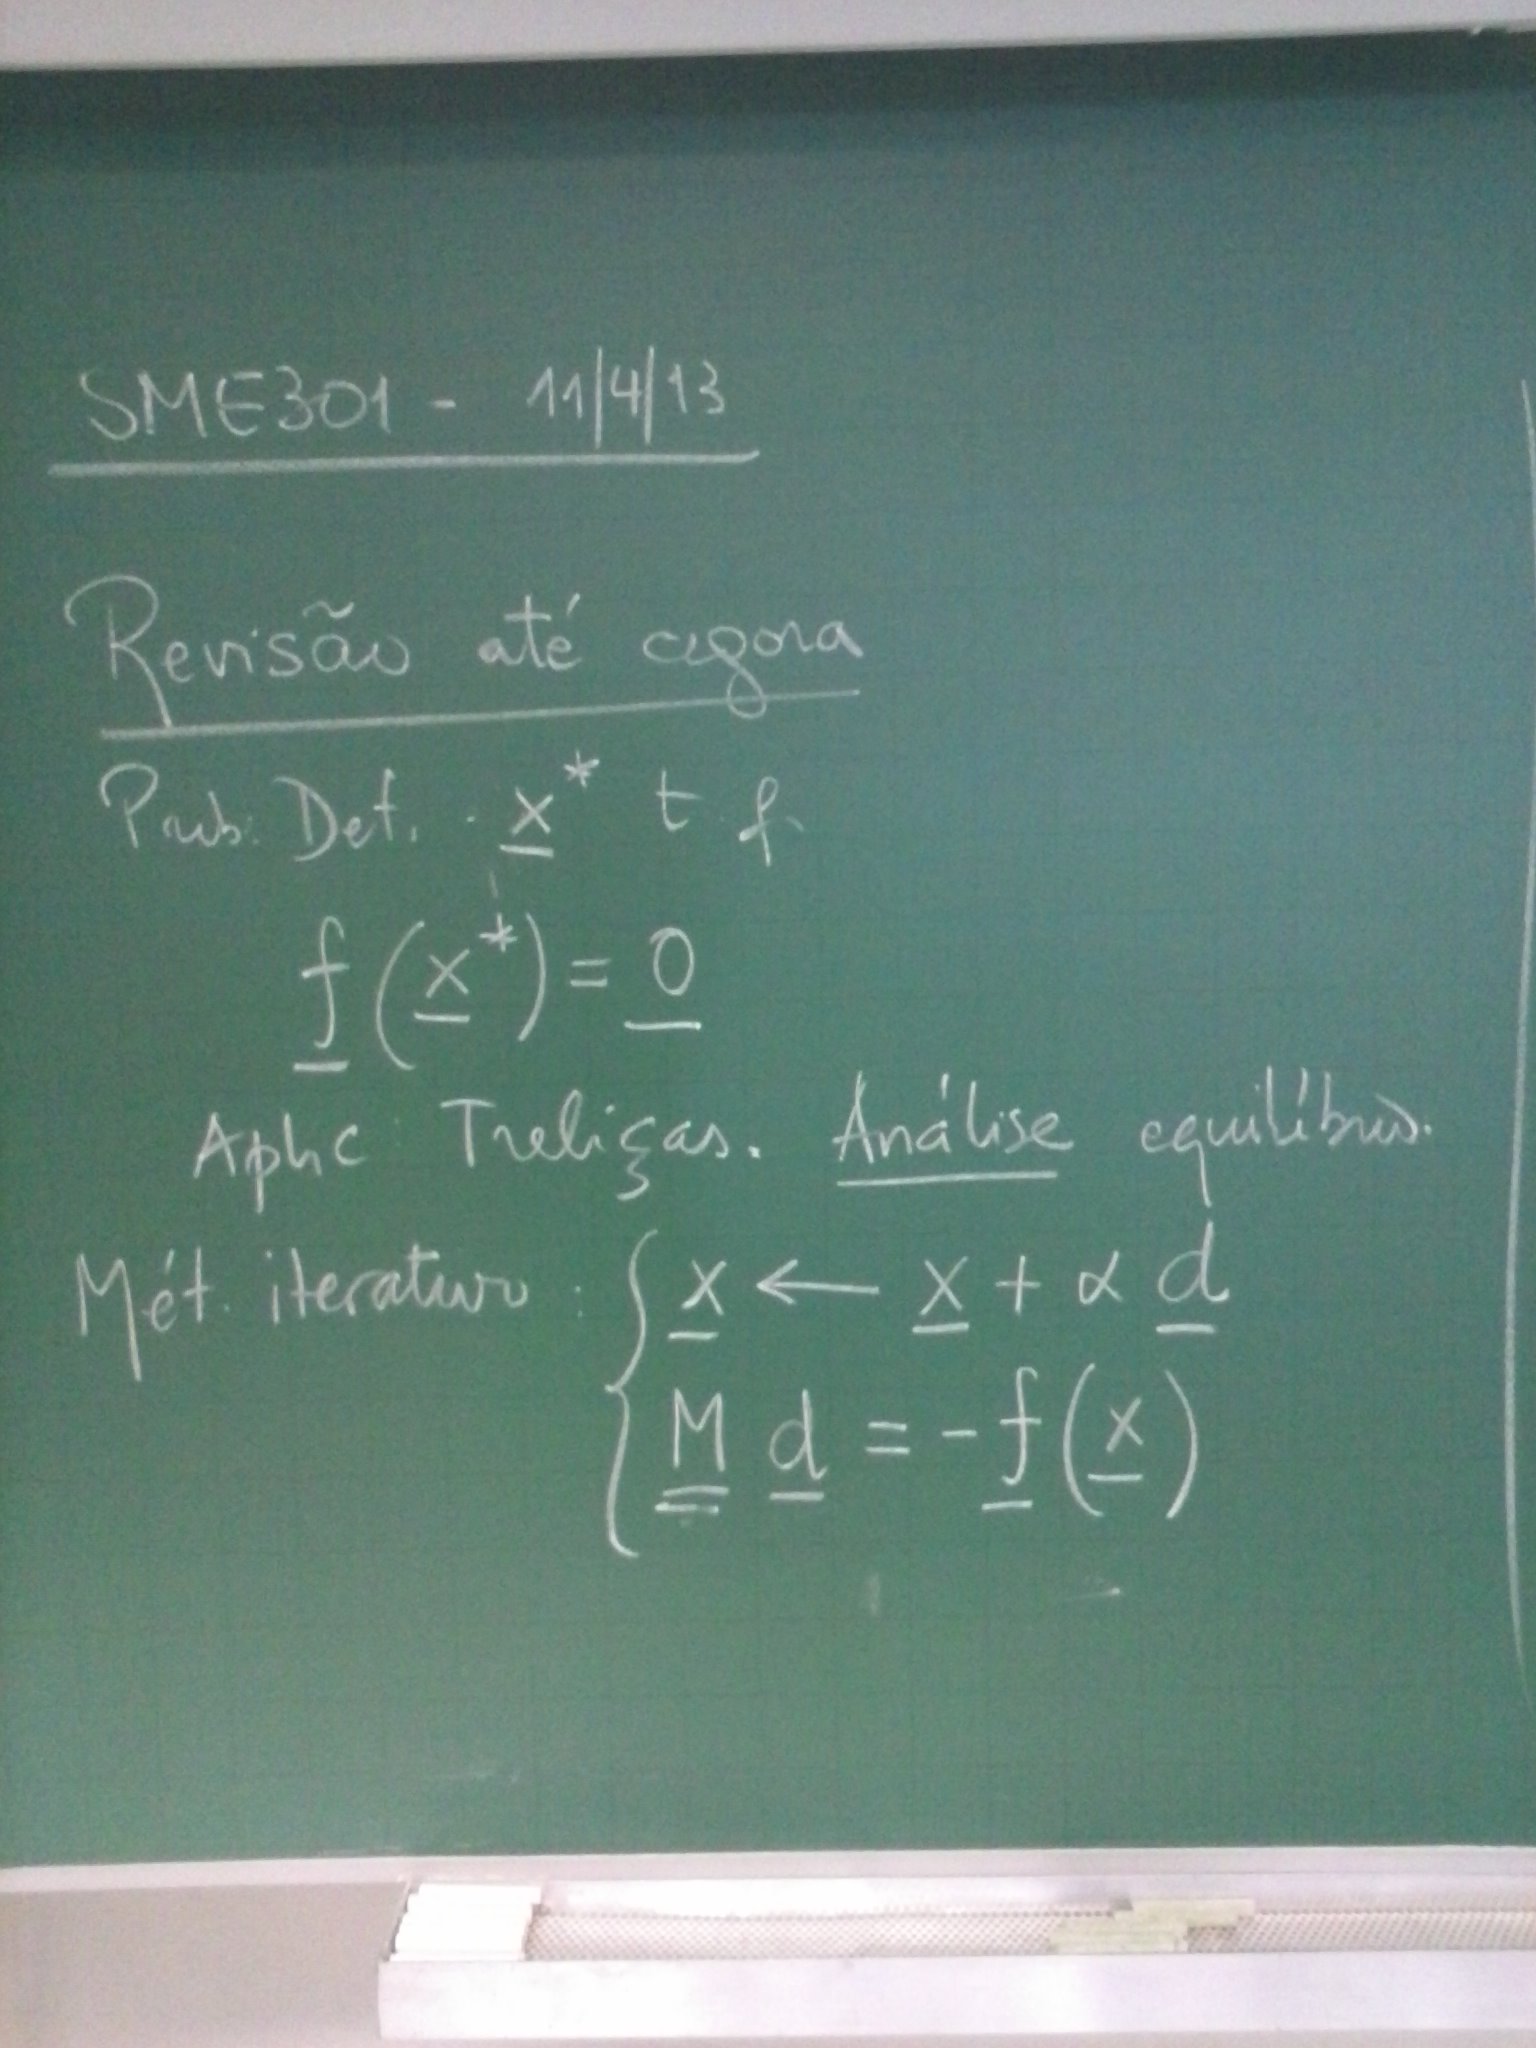 SME301 - 11/4/13
Revisão até agora
Prob. Det. x* t.f.
f(x*) = 0
Aplic Treliças. Análise equilíbrio.
Mét. iterativo : { x ← x + α d
M d = -f(x)